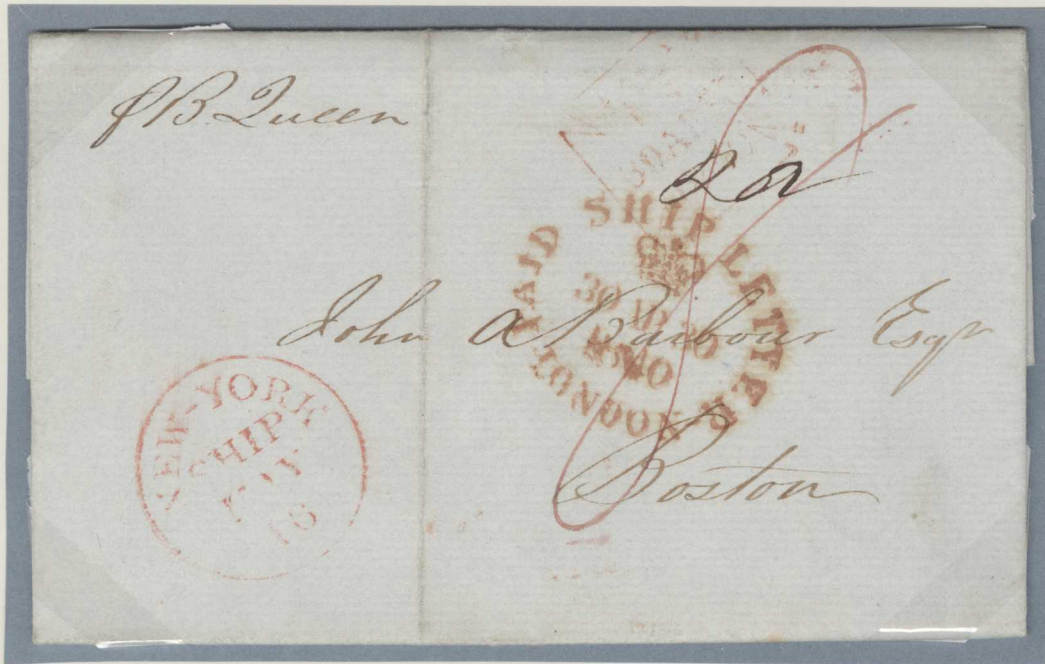 p B Queen
22
PAID SHIP LETTER
LONDON
30
1840
John A Barbour Esqr
Boston
NEW-YORK
SHIP
MAY
18